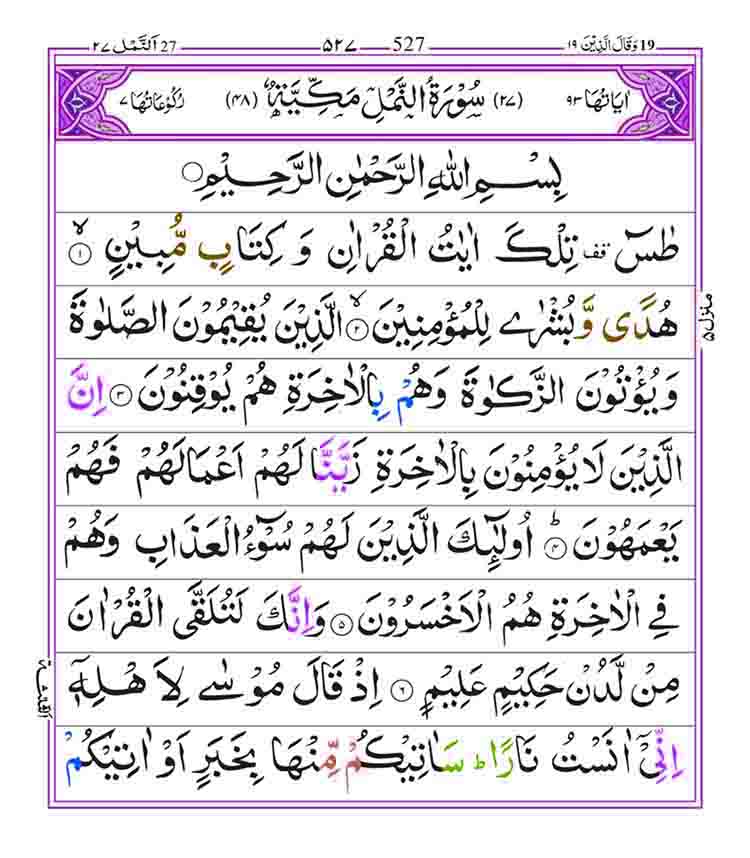 19 وَقَالَ الَّذِيْنَ ١٩ 527 ۵۲۷ 27 اَلنَّمْل ۲۷
اٰيَاتُهَا ۹۳ (۲۷) سُوْرَةُ النَّمْلِ مَكِّيَّةٌ (۴۸) رُكُوْعَاتُهَا ۷
بِسْمِ اللّٰهِ الرَّحْمٰنِ الرَّحِيْمِ
طٰسٓ قف تِلْكَ اٰيٰتُ الْقُرْاٰنِ وَ كِتَابٍ مُّبِيْنٍ ۙ‏﴿۱﴾
هُدًى وَّبُشْرٰى لِلْمُؤْمِنِيْنَ ۙ‏﴿۲﴾ الَّذِيْنَ يُقِيْمُوْنَ الصَّلٰوةَ
منزل ۵
وَيُؤْتُوْنَ الزَّكٰوةَ وَهُمْ بِالْاٰخِرَةِ هُمْ يُوْقِنُوْنَ ﴿۳﴾ اِنَّ
الَّذِيْنَ لَا يُؤْمِنُوْنَ بِالْاٰخِرَةِ زَيَّنَّا لَهُمْ اَعْمَالَهُمْ فَهُمْ
يَعْمَهُوْنَ ؕ‏﴿۴﴾ اُولٰٓئِكَ الَّذِيْنَ لَهُمْ سُوْٓءُ الْعَذَابِ وَهُمْ
فِي الْاٰخِرَةِ هُمُ الْاَخْسَرُوْنَ ﴿۵﴾ وَاِنَّكَ لَتُلَقَّى الْقُرْاٰنَ
مِنْ لَّدُنْ حَكِيْمٍ عَلِيْمٍ ﴿۶﴾ اِذْ قَالَ مُوْسٰى لِاَهْلِهٖٓ
اِنِّيْٓ اٰنَسْتُ نَارًا ؕ سَاٰتِيْكُمْ مِّنْهَا بِخَبَرٍ اَوْ اٰتِيْكُمْ